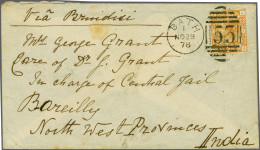 Via Brindisi
BATH
NO 29
76
53
Mrs George Grant
Care of Dr G. Grant
In charge of Central Jail
Bareilly
North West Provinces
India